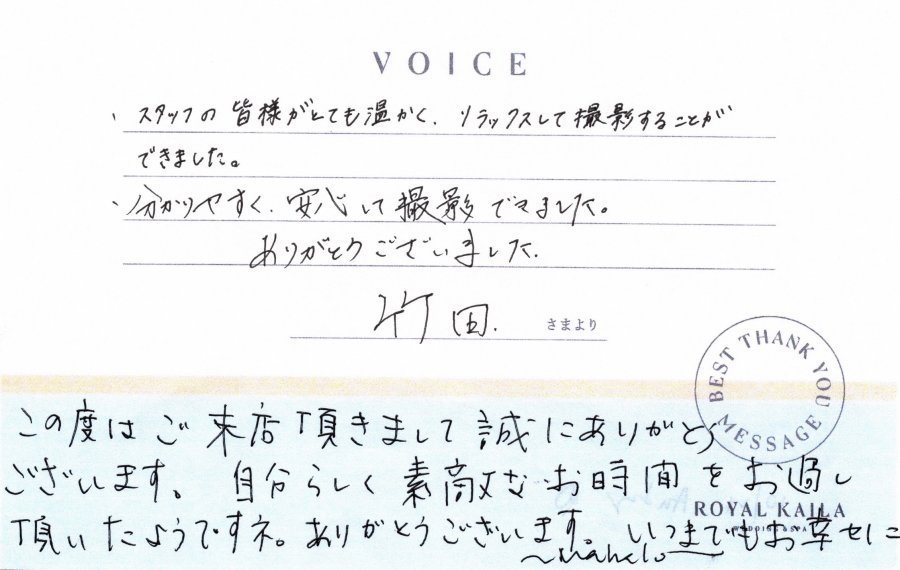 VOICE
、スタッフの皆様がとても温かく、リラックスして撮影することが
できました。
、分かりやすく、安心して撮影できました。
ありがとうございました。
竹田. さまより
BEST THANK YOU MESSAGE
この度はご来店頂きまして誠にありがとう
ございます。自分らしく素敵なお時間をお過し
ROYAL KAILA
WEDDING&SPA
頂いたようですネ。ありがとうございます。いつまでもお幸せに
〜mahalo〜